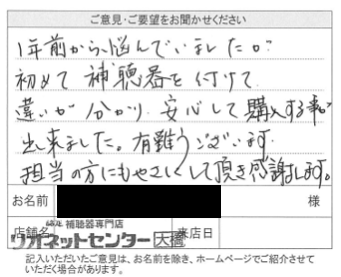 ご意見・ご要望をお聞かせください
1年前から悩んでいましたが
初めて補聴器を付けて
違いが分かり、安心して購入する事が
出来ました。有難うございます。
担当の方にもやさしくして頂き感謝します。
お名前
様
認定補聴器専門店
店舗名
リオネットセンター大橋
来店日
記入いただいたご意見は、お名前を除き、ホームページでご紹介させて
いただく場合があります。